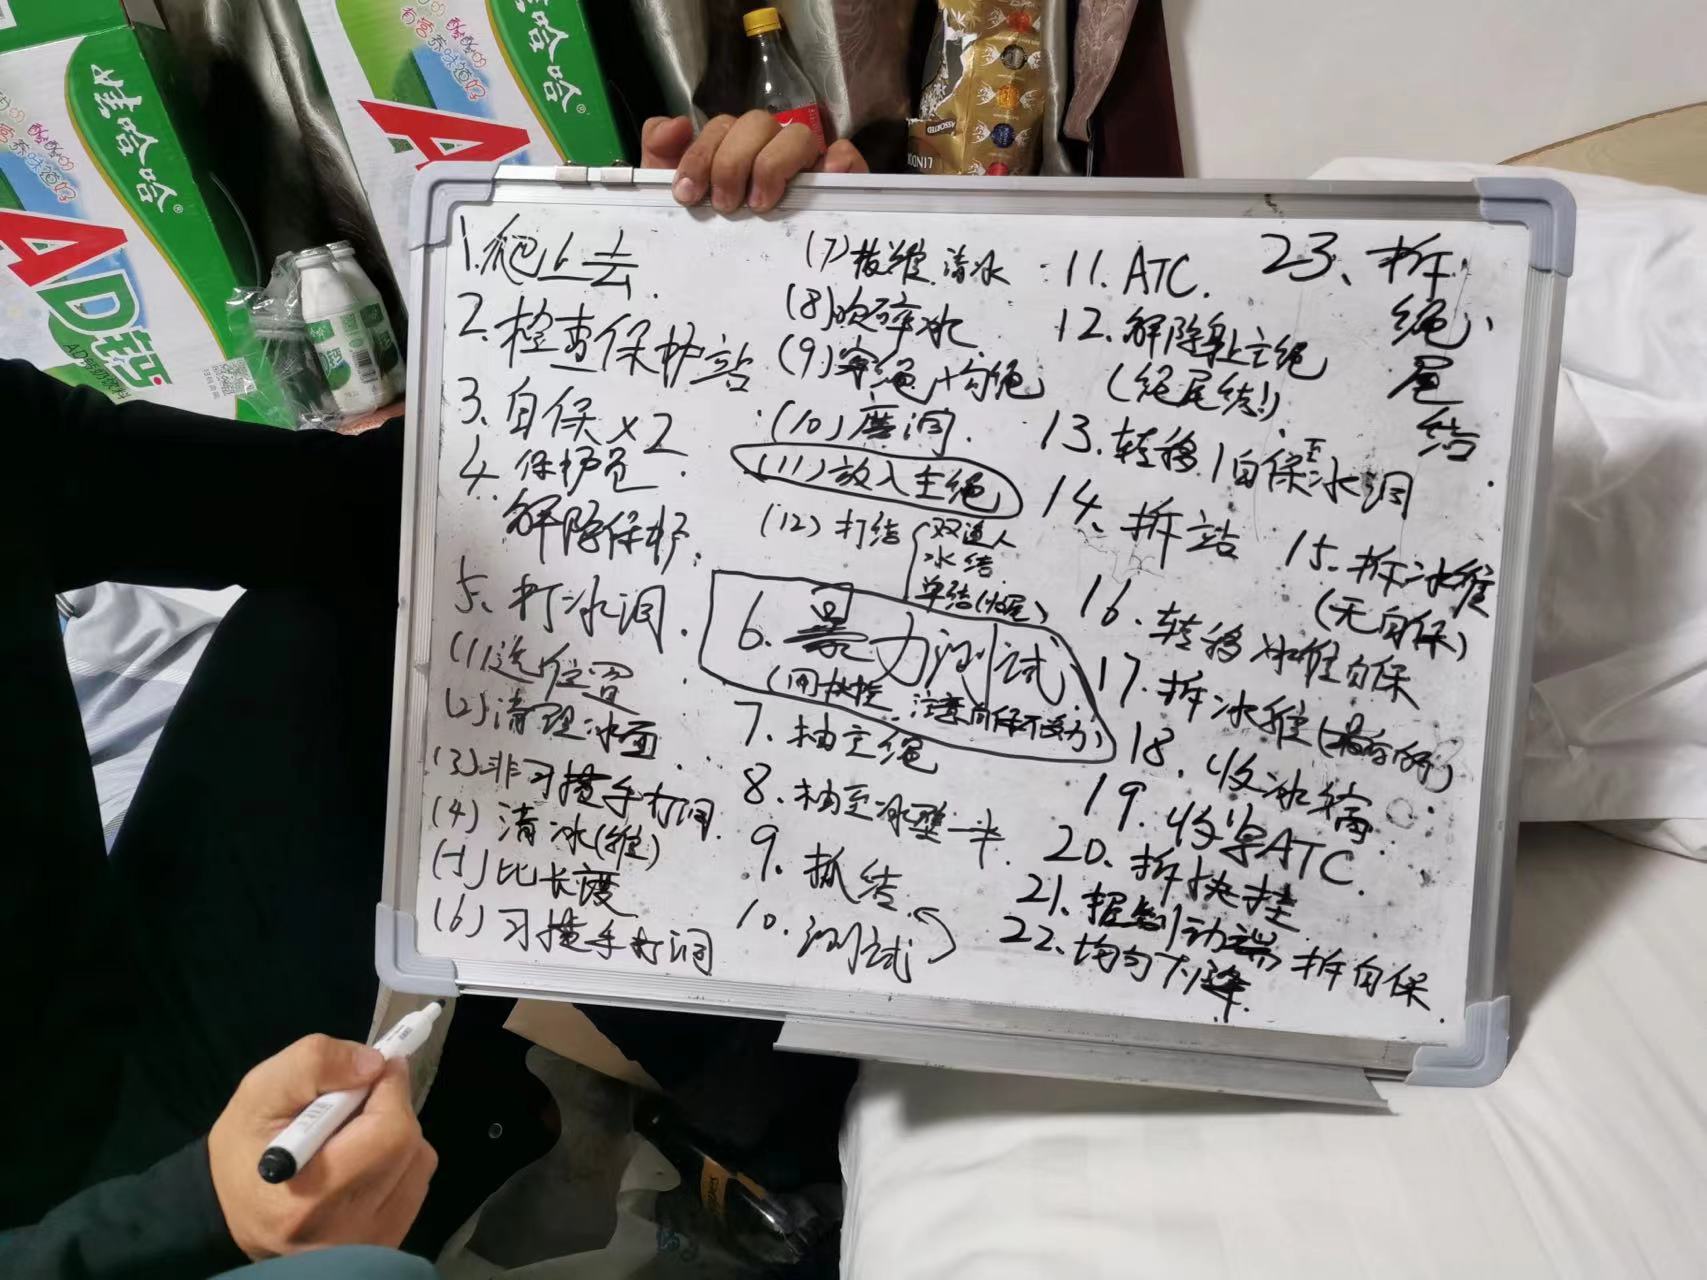 1. 爬上去.
2. 检查保护站
3. 自保×2
4. 保护员
解除保护.
5. 打冰洞.
(1) 选位置
(2) 清理冰面.
(3) 非习惯手打洞.
(4) 清冰(锥)
(5) 比长度
(6) 习惯手打洞
(7) 拔锥.清冰
(8) 吹碎冰
(9) 穿绳,
(10) 磨洞.
(11) 放入主绳
(12) 打结
双渔人
水结
单结
6. 暴力测试
7. 抽主绳
8. 抽至冰壁一半.
9. 抓结.
10. 测试
11. ATC.
12. 解除身上主绳
(绳尾结!).
13. 转移1自保至冰洞
14. 拆站
15. 拆冰锥
(无自保)
16. 转移冰锥自保
17. 拆冰锥
18. 收冰镐.
19. 收紧ATC.
20. 拆快挂
21. 握制动端 拆自保.
22. 均匀下降.
23、拆
绳
尾
结
娃哈哈®
AD钙
AD钙奶饮料
娃哈哈®
A
ASSORTED
LINDOR